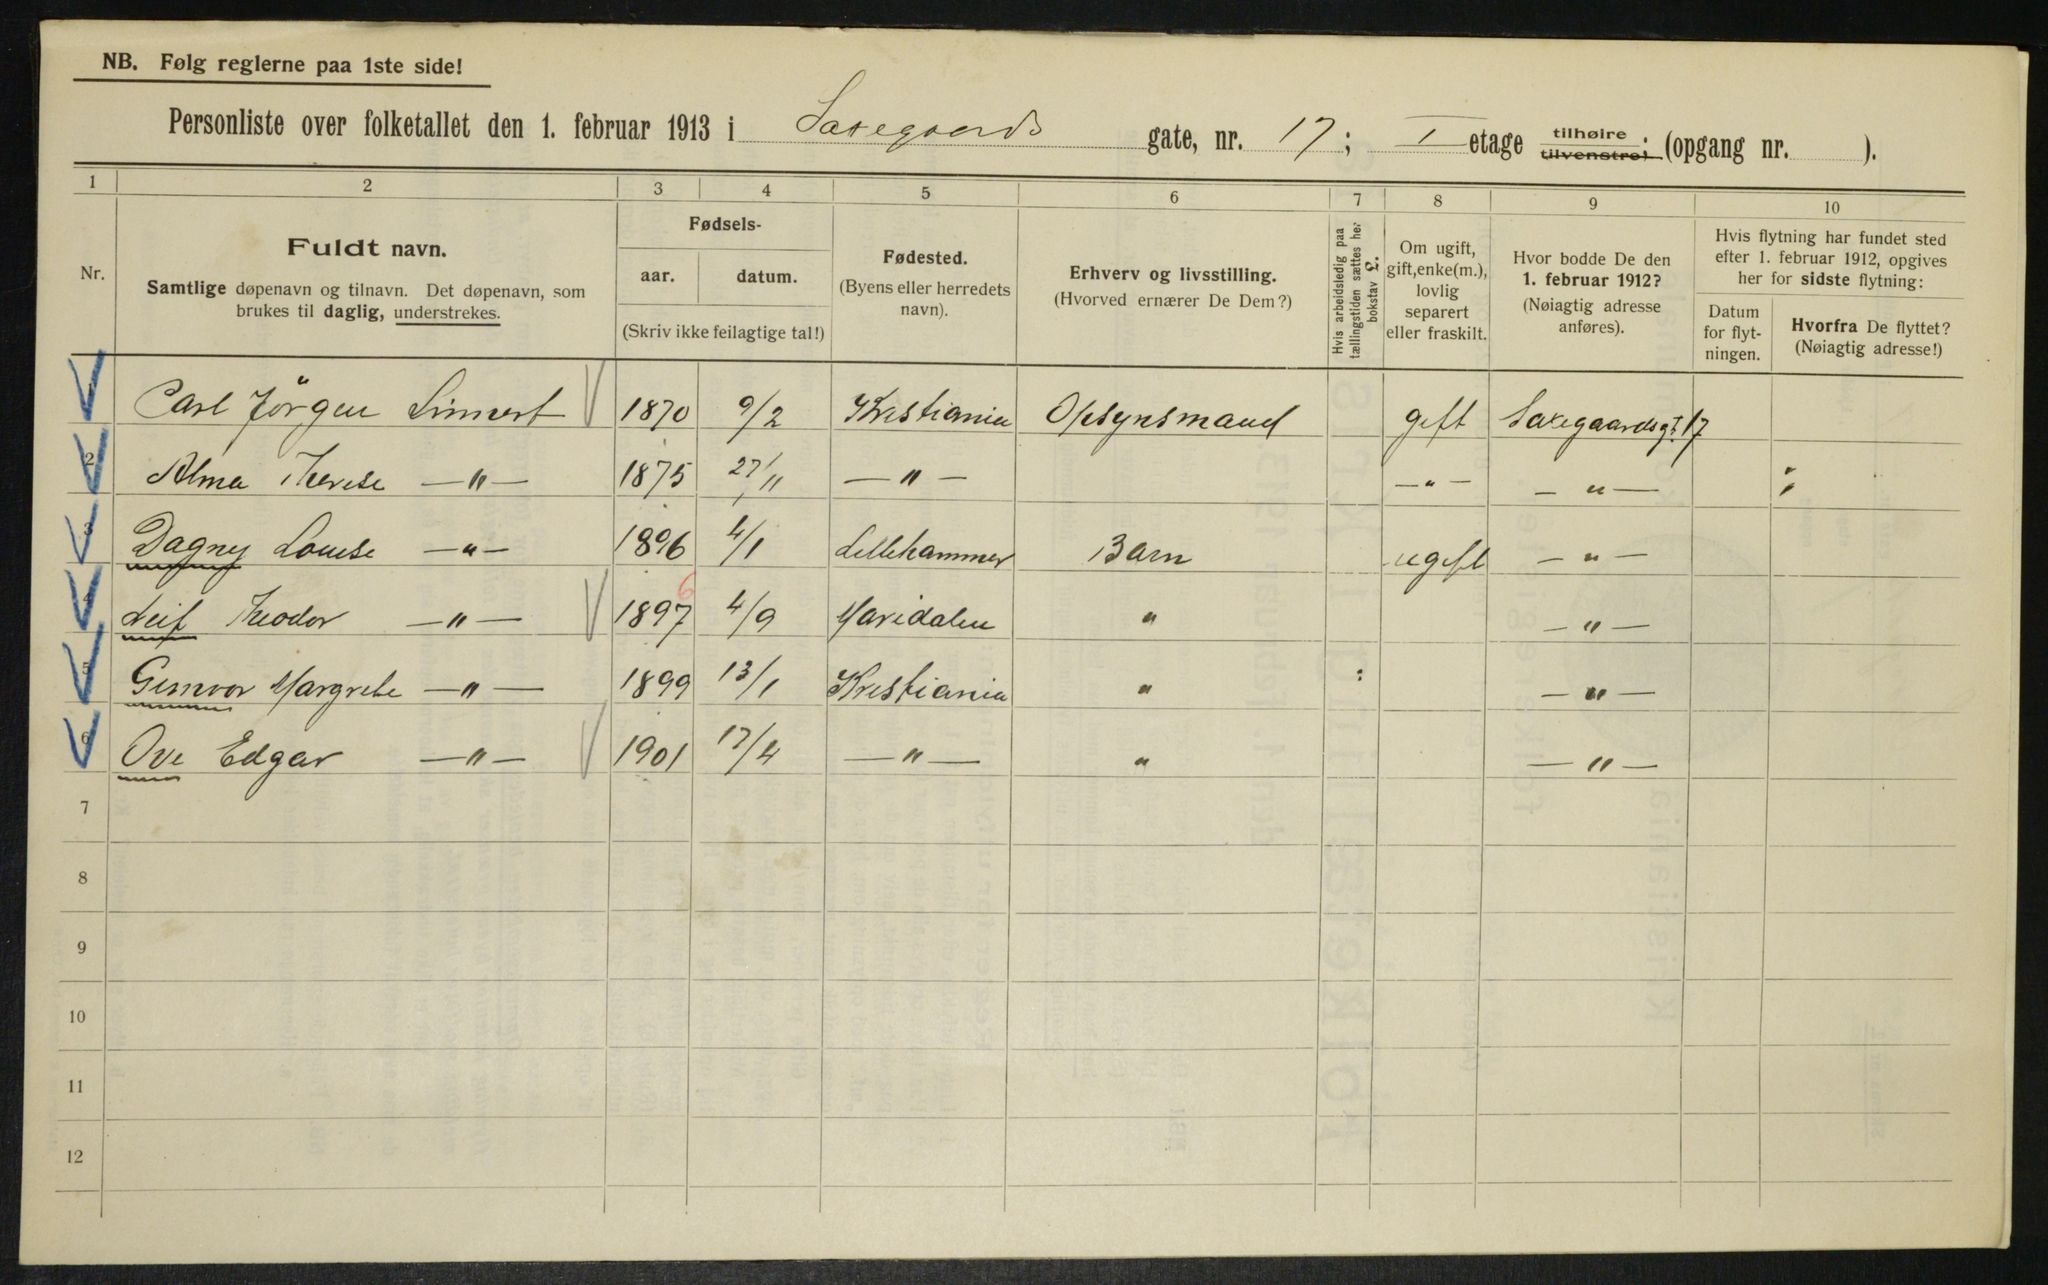 NB. Følg reglerne paa 1ste side!
Personliste over folketallet den 1. februar 1913 i Saxegaards gate, nr. 17; I etage tilhøire tilvenstre; (opgang nr. ).
1 2 3 4 5 6 7 8 9 10
Nr.
Fuldt navn.
Samtlige døpenavn og tilnavn. Det døpenavn, som
brukes til daglig, understrekes.
Fødsels-
aar. datum.
(Skriv ikke feilagtige tal!)
Fødested.
(Byens eller herredets
navn).
Erhverv og livsstilling.
(Hvorved ernærer De Dem?)
Hvis arbeidsledig paa
tællingstiden sættes her
bokstav L.
Om ugift,
gift, enke(m.),
lovlig
separert
eller fraskilt.
Hvor bodde De den
1. februar 1912?
(Nøiagtig adresse
anføres).
Hvis flytning har fundet sted
efter 1. februar 1912, opgives
her for sidste flytning:
Datum
for flyt-
ningen.
Hvorfra De flyttet?
(Nøiagtig adresse!)
1 Carl Jörgen Linnert 1870 9/2 Kristiania Opsynsmand gift Saxegaardsgt. 17
2 Alma Therese — " — 1875 27/11 — " — — " — — " —
3 Dagny Louise — " — 1896 4/1 Lillehammer Barn ugift — " —
4 Leif Theodor — " — 1897 6 4/9 Maridalen " — " —
5 Gunvor Margrete — " — 1899 13/1 Kristiania " — " —
6 Ove Edgar — " — 1901 17/4 — " — " — " —
7
8
9
10
11
12